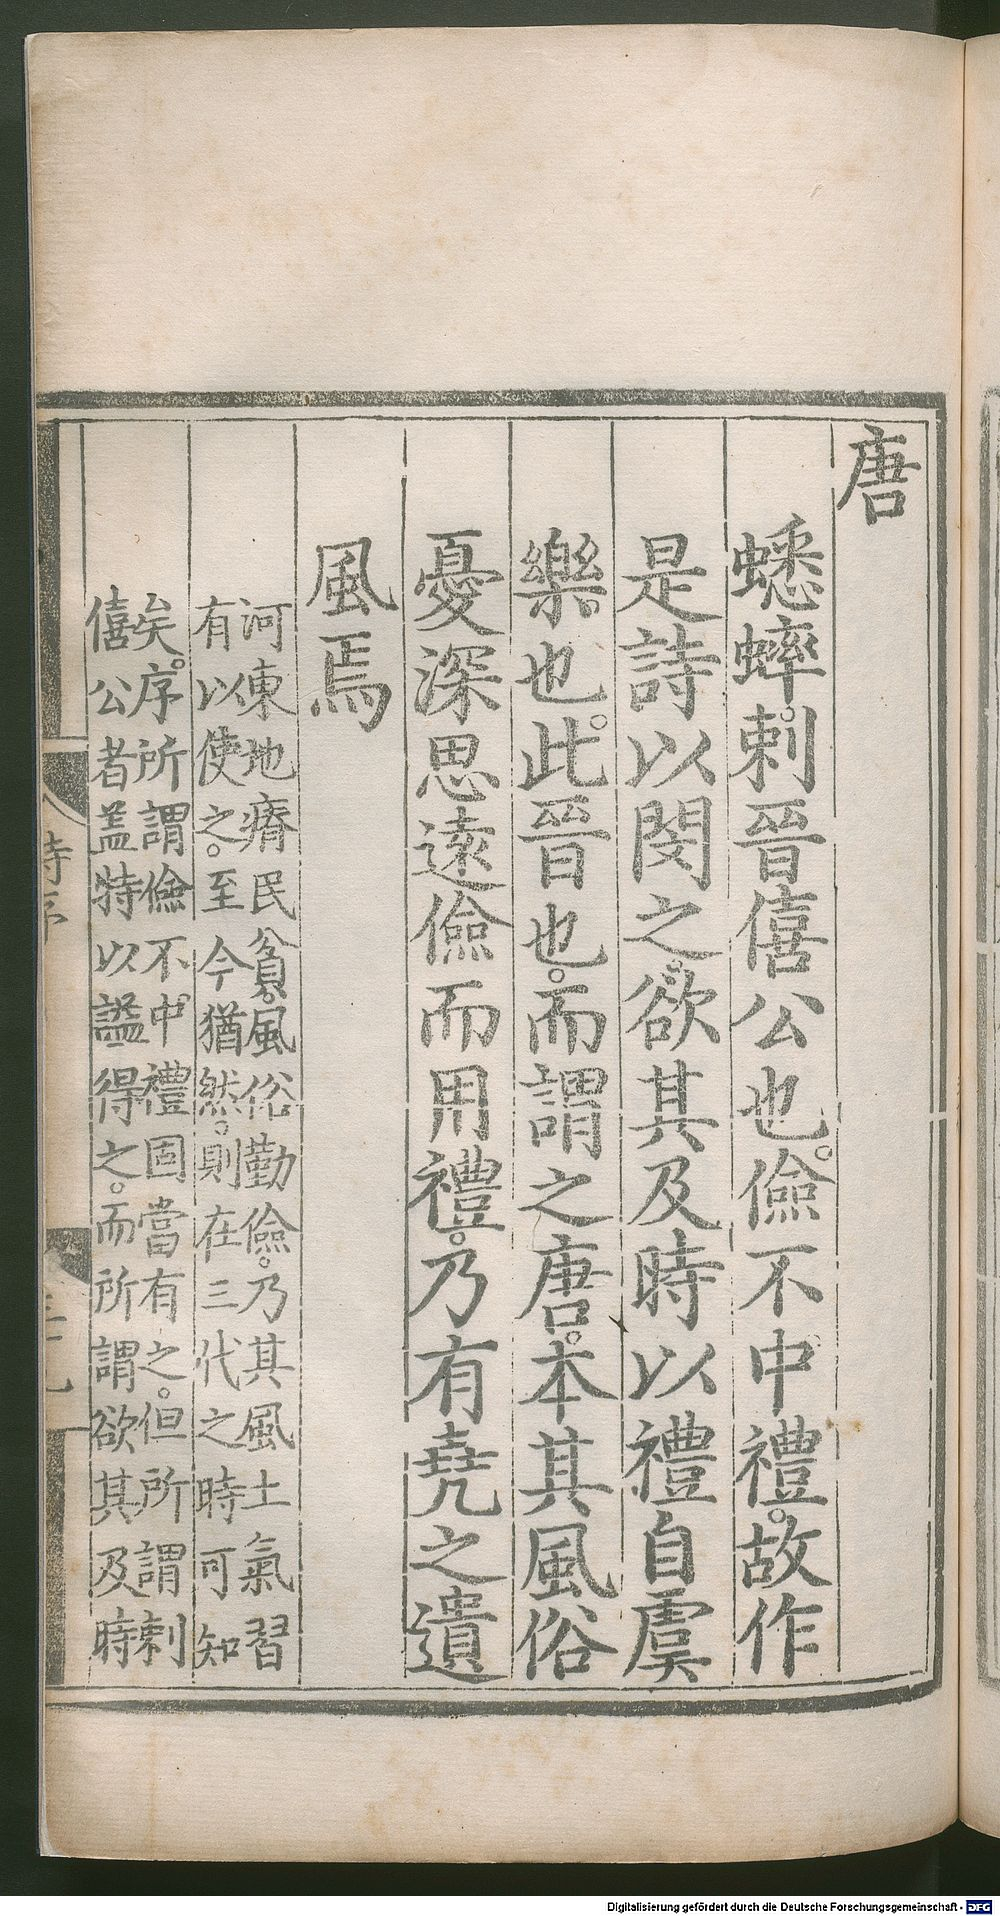 唐
蟋蟀。刺晉僖公也。儉不中禮。故作
是詩以閔之。欲其及時以禮自虞
樂也。此晉也。而謂之唐。本其風俗
憂深思遠儉而用禮。乃有堯之遺
風焉
河東地瘠民貧。風俗勤儉。乃其風土氣習
有以使之。至今猶然。則在三代之時可知
矣。序所謂儉不中禮固當有之。但所謂刺
僖公者盖特以謚得之。而所謂欲其及時
Digitalisierung gefördert durch die Deutsche Forschungsgemeinschaft - DFG